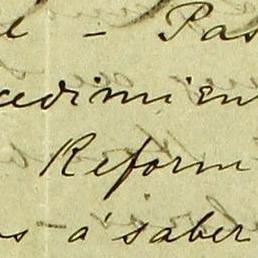 l - Pas
cedimien
Reform
os á saber